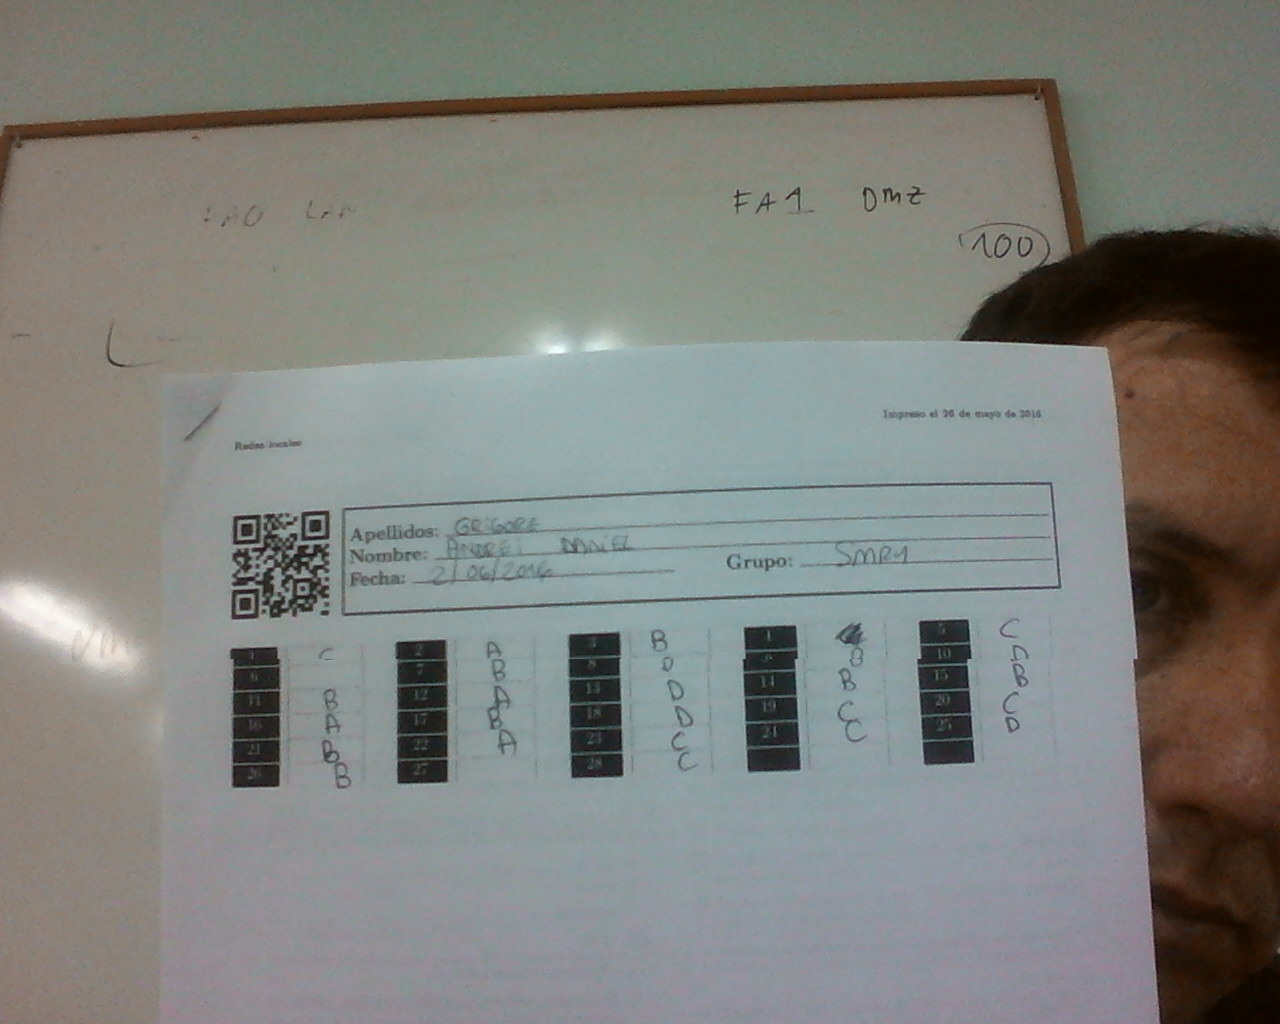 FA0 LAN
FA1 DMZ
100
Impreso el 26 de mayo de 2016
Redes locales
Apellidos: GRIGORE
Nombre: ANDREI DANIEL
Fecha: 2/06/2016
Grupo: SMR1
1 C 2 A 3 B 4 5 C
6 7 B 8 D 9 B 10 A
11 B 12 A 13 D 14 B 15 B
16 A 17 B 18 D 19 C 20 C
21 B 22 A 23 C 24 C 25 D
26 B 27 28 C